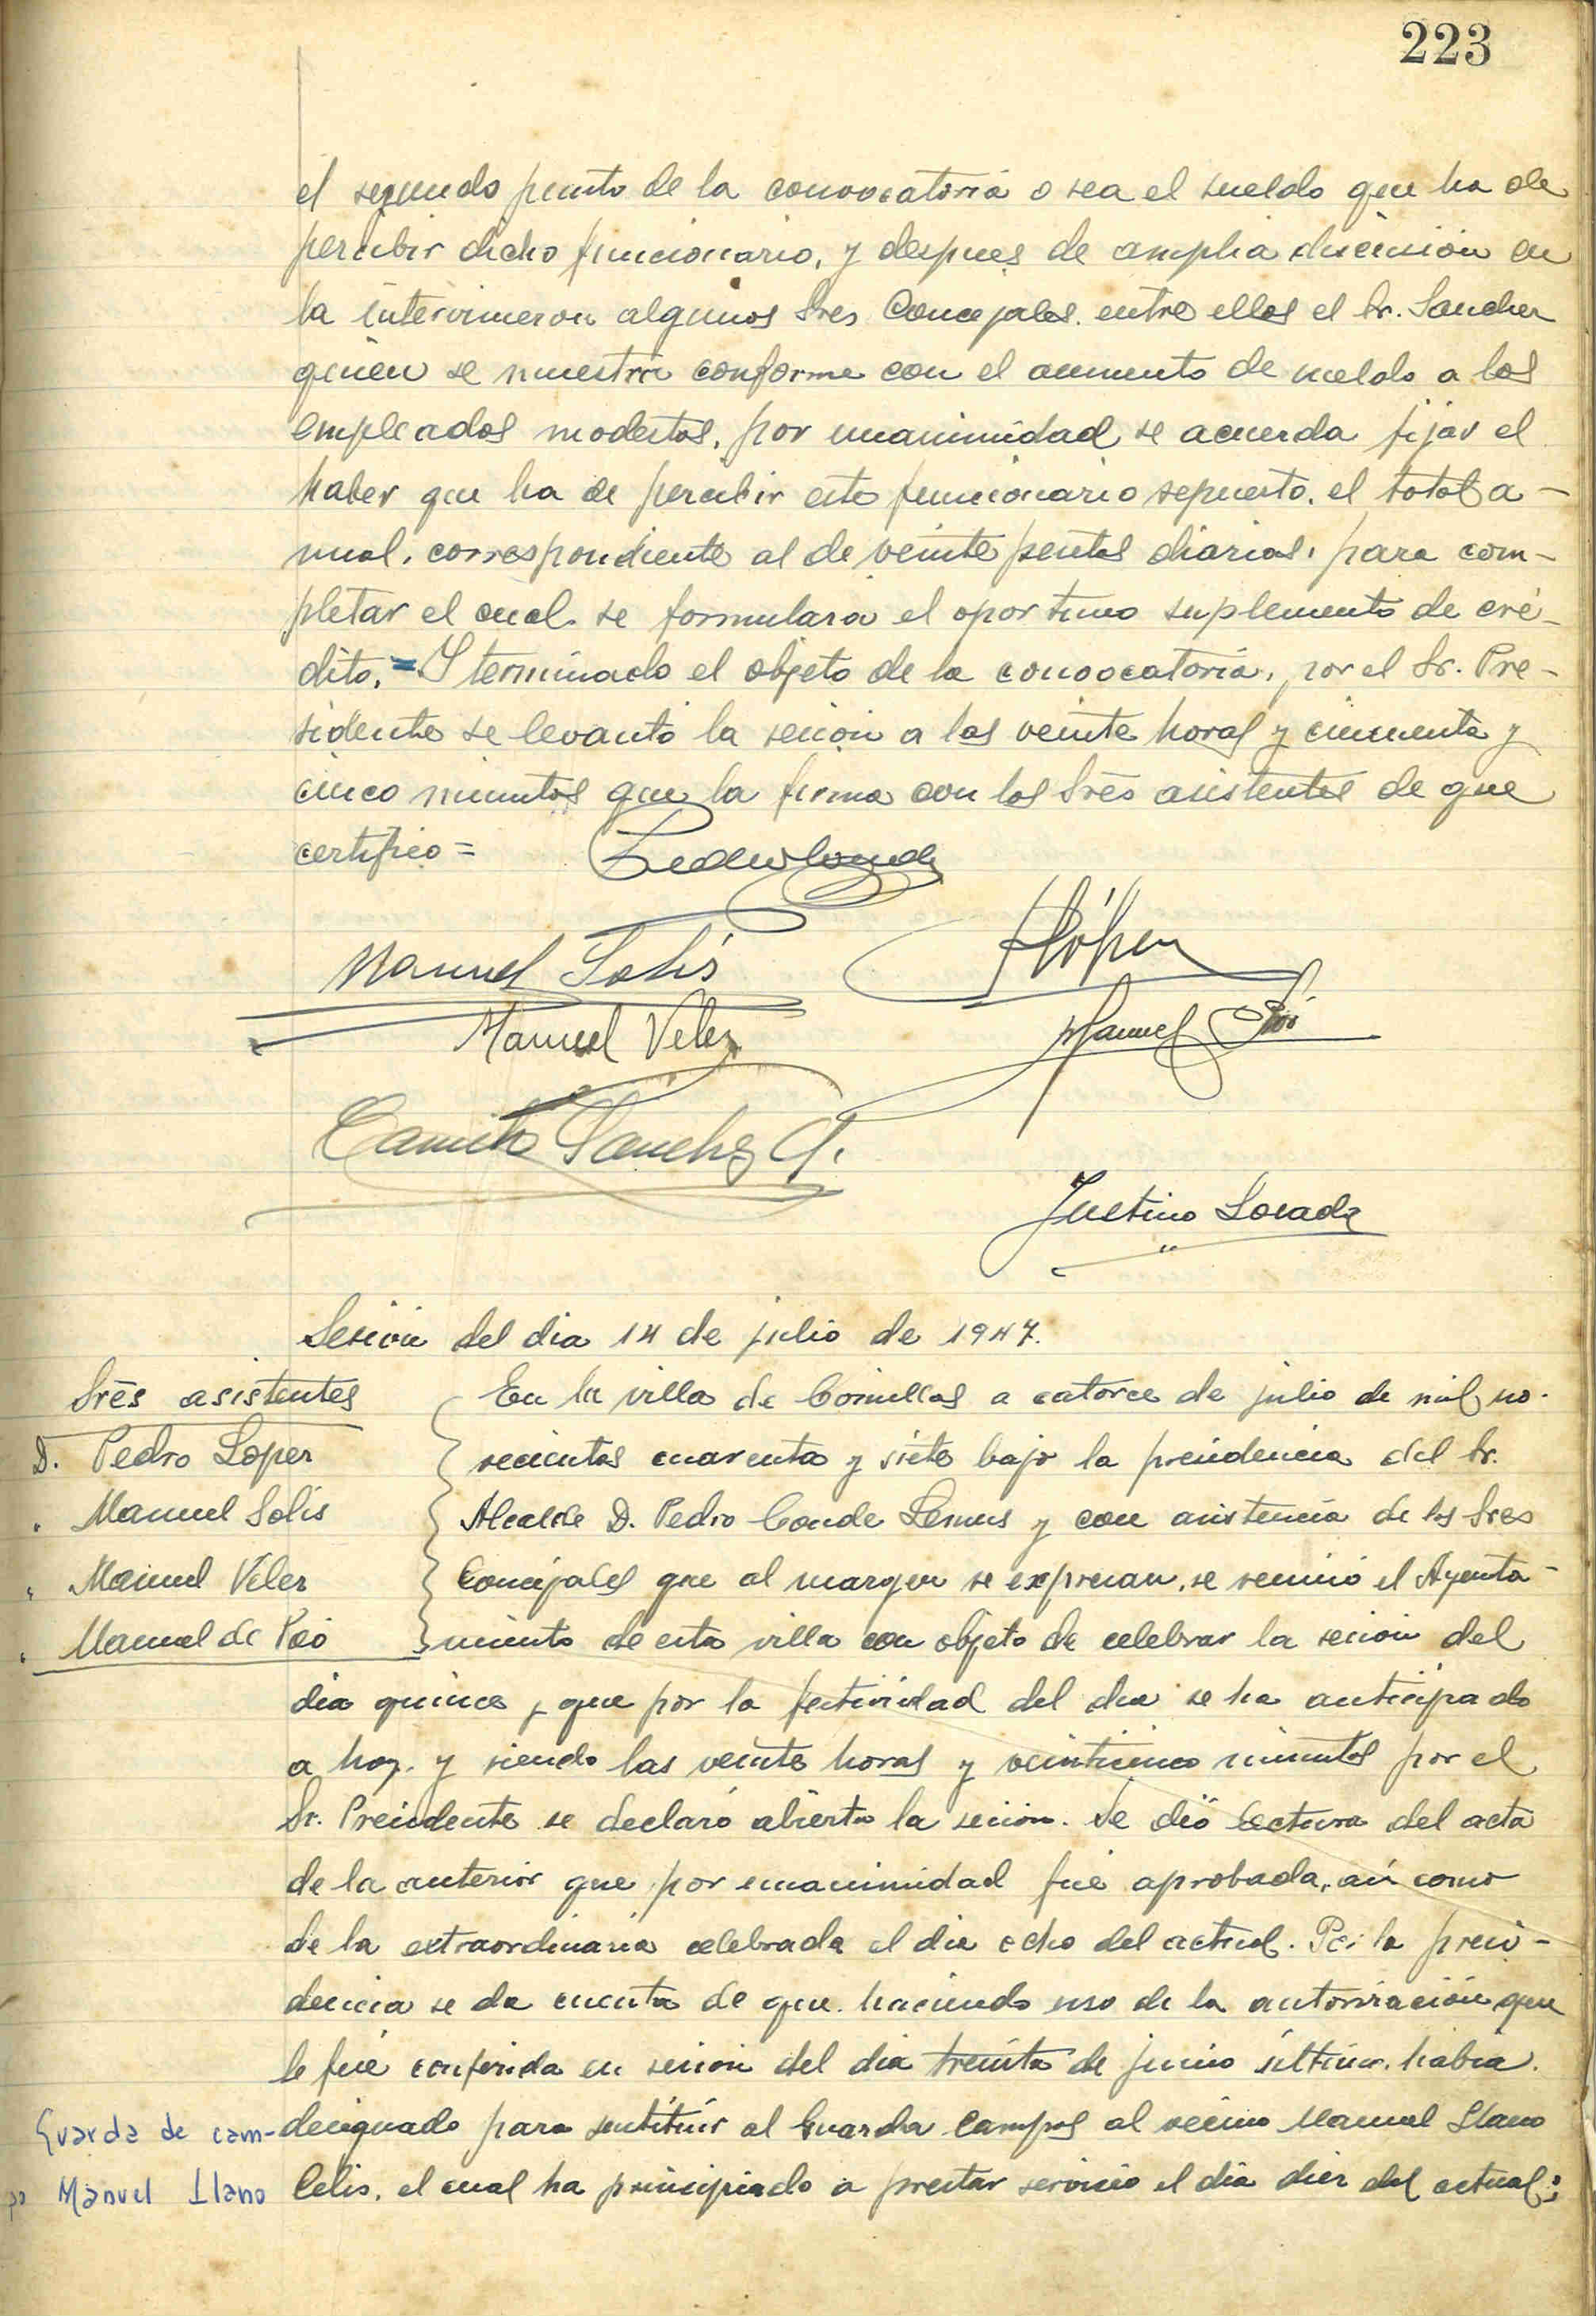 223
el segundo punto de la convocatoria o sea el sueldo que ha de
percibir dicho funcionario, y despues de amplia discusión en
la intervinieron algunos Sres Concejales entre ellos el Sr. Sanchez
quien se muestra conforme con el aumento de sueldo a los
empleados modestos, por unanimidad se acuerda fijar el
haber que ha de percibir este funcionario repuesto, el total a-
nual, correspondiente al de veinte pesetas diarias, para com-
pletar el cual se formulara el oportuno suplemento de cré-
dito. = Y terminado el objeto de la convocatoria, por el Sr. Pre-
sidente se levantó la sesion a las veinte horas y cincuenta y
cinco minutos que la firma con los Sres asistentes de que
certifico =
Pedro Conde
Manuel Solís
PLópez
Manuel Velez
Manuel Pío
Camilo Sanchez G.
Justino Losada
Sesión del dia 14 de julio de 1947.
Sres asistentes
D. Pedro Lopez
" Manuel Solis
" Manuel Velez
" Manuel de Pío
En la villa de Comillas a catorce de julio de mil no-
vecientos cuarenta y siete bajo la presidencia del Sr.
Alcalde D. Pedro Conde Lemus y con asistencia de los Sres
Concejales que al margen se expresan, se reunió el Ayunta-
miento de esta villa con objeto de celebrar la sesion del
dia quince, que por la festividad del dia se ha anticipado
a hoy, y siendo las veinte horas y veinticinco minutos por el
Sr. Presidente se declaró abierta la sesion. Se dió lectura del acta
de la anterior que por unanimidad fué aprobada, asi como
de la extraordinaria celebrada el dia ocho del actual. Por la presi-
dencia se da cuenta de que haciendo uso de la autorización que
le fué conferida en sesion del dia treinta de junio último, habia
designado para sustituir al Guarda Campos al vecino Manuel Llano
Celis, el cual ha principiado a prestar servicio el dia diez del actual;
Guarda de cam-
po Manuel Llano